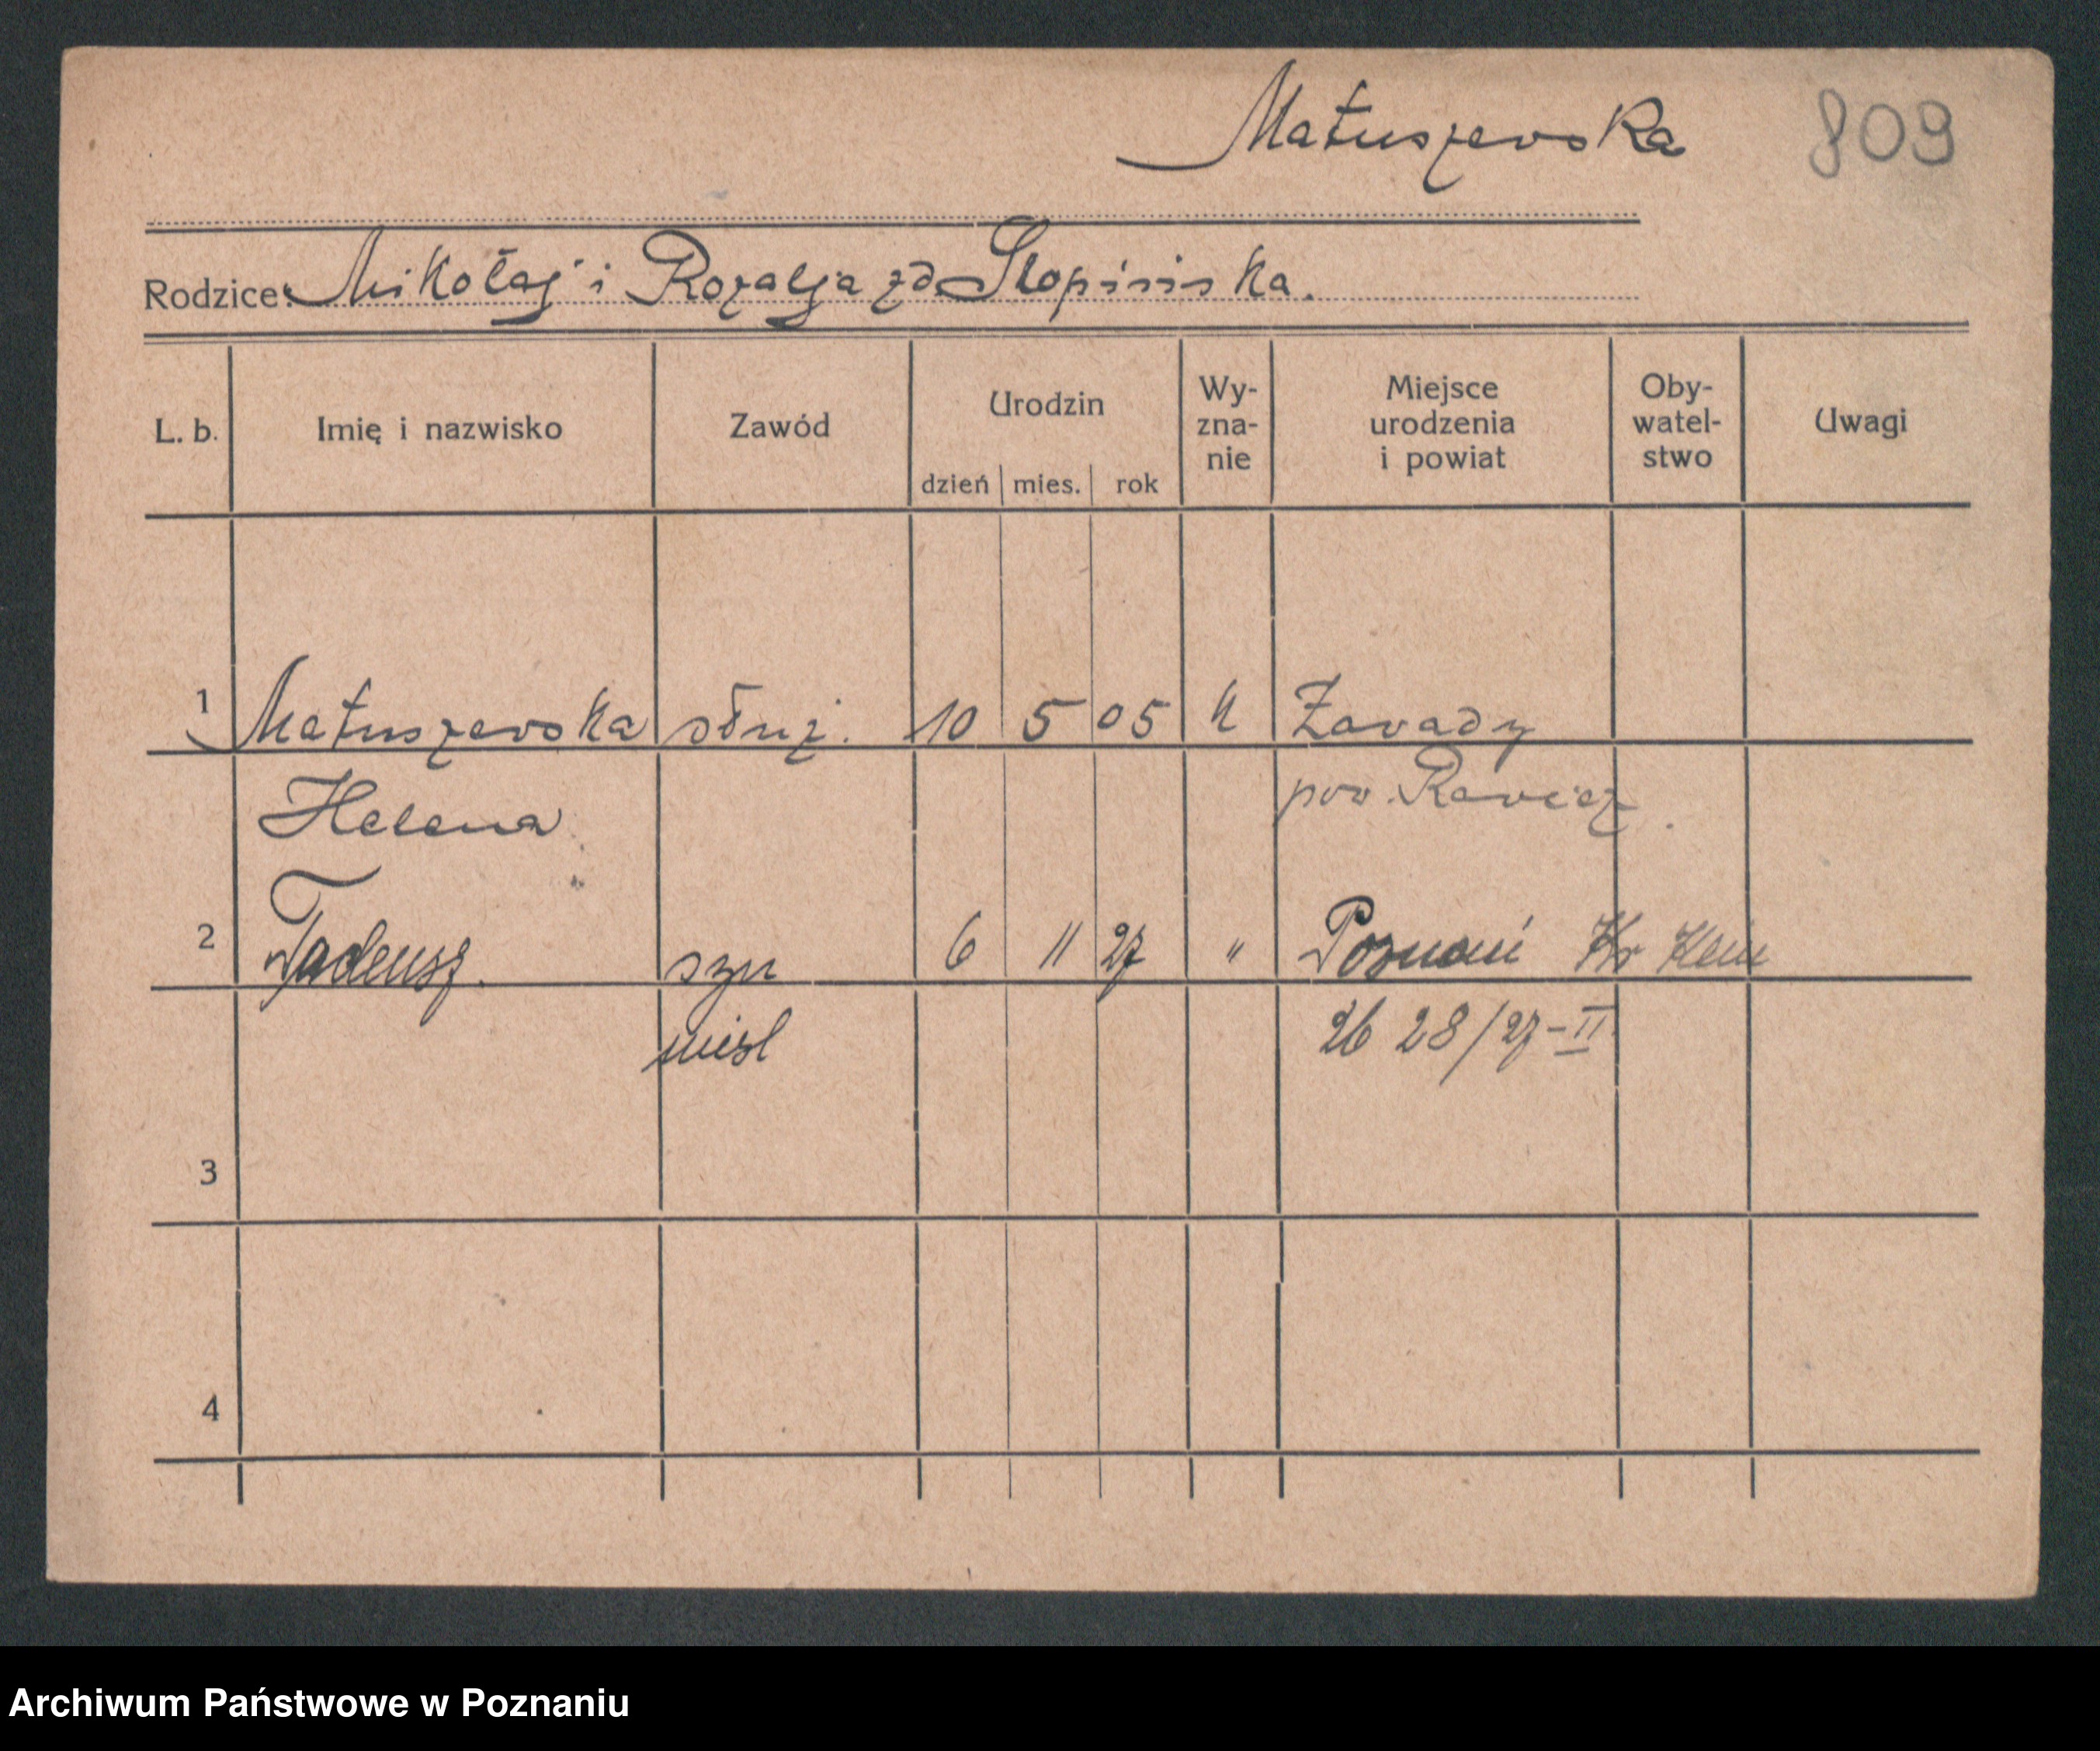 Matuszewska 809
Rodzice: Mikołaj i Rozalja zd Slopińska.
L. b. Imię i nazwisko Zawód Urodzin dzień mies. rok Wy-zna-nie Miejsce urodzenia i powiat Oby-watel-stwo Uwagi
1 Matuszewska służ. 10 5 05 k Zawady
Helena pow. Rawicz
2 Tadeusz. syn 6 11 27 " Poznań
26 28/27-II
3
4
Archiwum Państwowe w Poznaniu